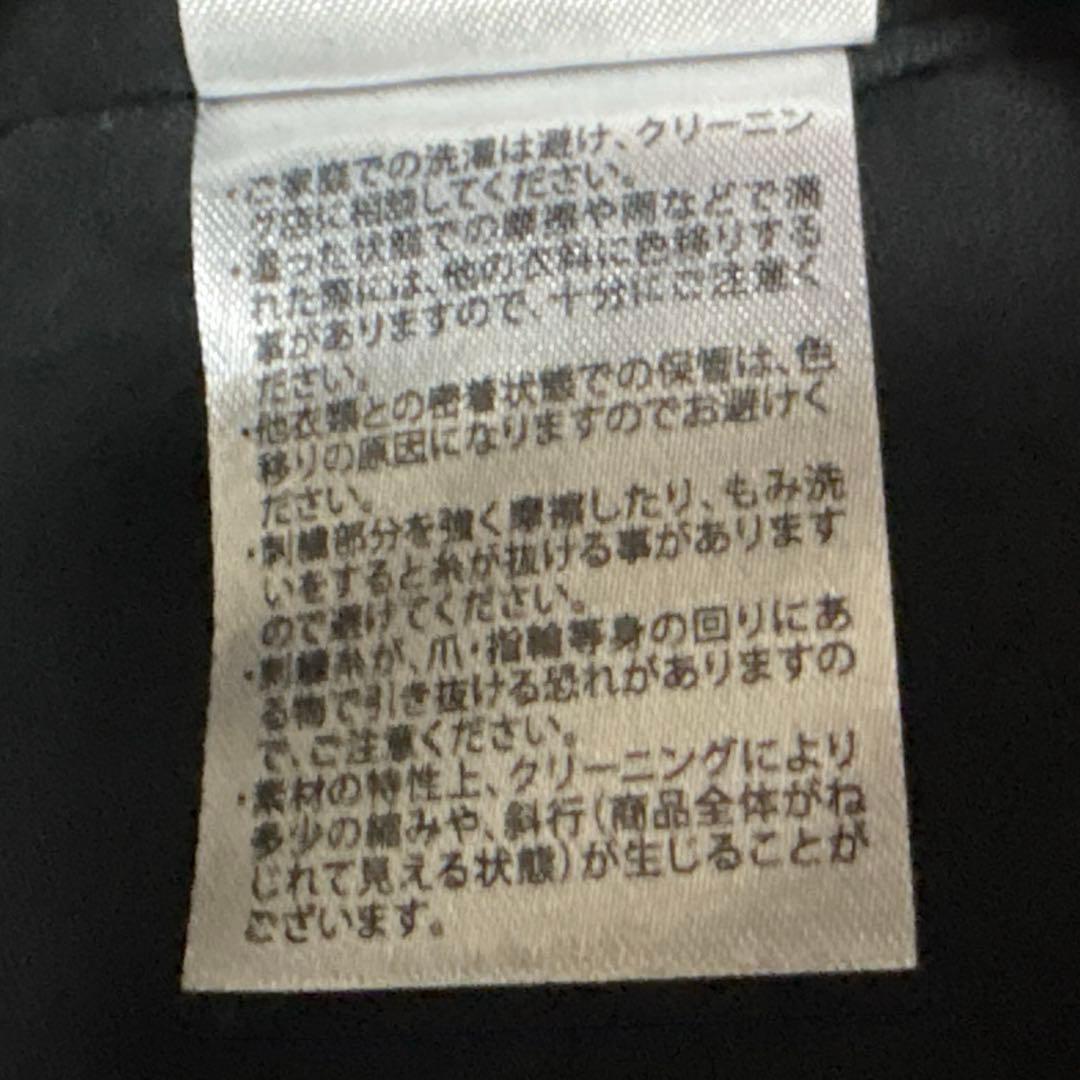 ・ご家庭での洗濯は避け、クリーニン
グ店に相談してください。
・湿った状態での摩擦や雨などで濡
れた際には、他の衣料に色移りする
事がありますので、十分にご注意く
ださい。
・他衣類との密着状態での保管は、色
移りの原因になりますのでお避けく
ださい。
・刺繍部分を強く摩擦したり、もみ洗
いをすると糸が抜ける事があります
ので避けてください。
・刺繍糸が、爪・指輪等身の回りにあ
る物で引き抜ける恐れがありますの
で、ご注意ください。
・素材の特性上、クリーニングにより
多少の縮みや、斜行(商品全体がね
じれて見える状態)が生じることが
ございます。